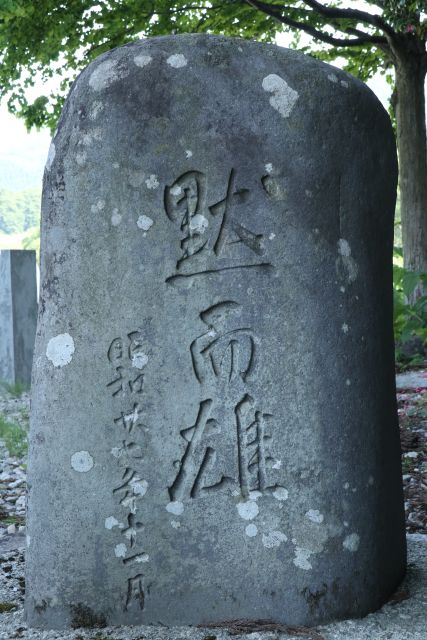 黙而雄
昭和廿七年十一月